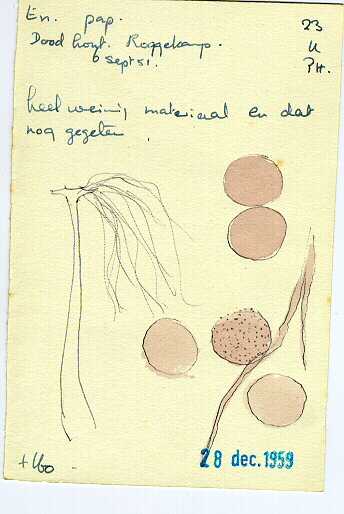 En. pap.
23
Dood hout. Roggekamp.
U
Sept 51.
PH.
heel weinig materiaal en dat
nog gegeten.
28 dec. 1959